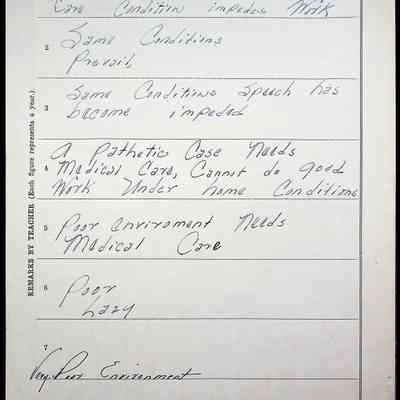 Care Condition impedes Work
2
Same Conditions
Prevail
3
Same Conditions Speech has
become impeded
4
A Pathetic Case Needs
Medical Care, Cannot do good
Work Under home Conditions
5
Poor enviroment Needs
Medical Care
6
Poor
Lazy
7
Very Poor Environment
REMARKS BY TEACHER (Each figure represents a year.)